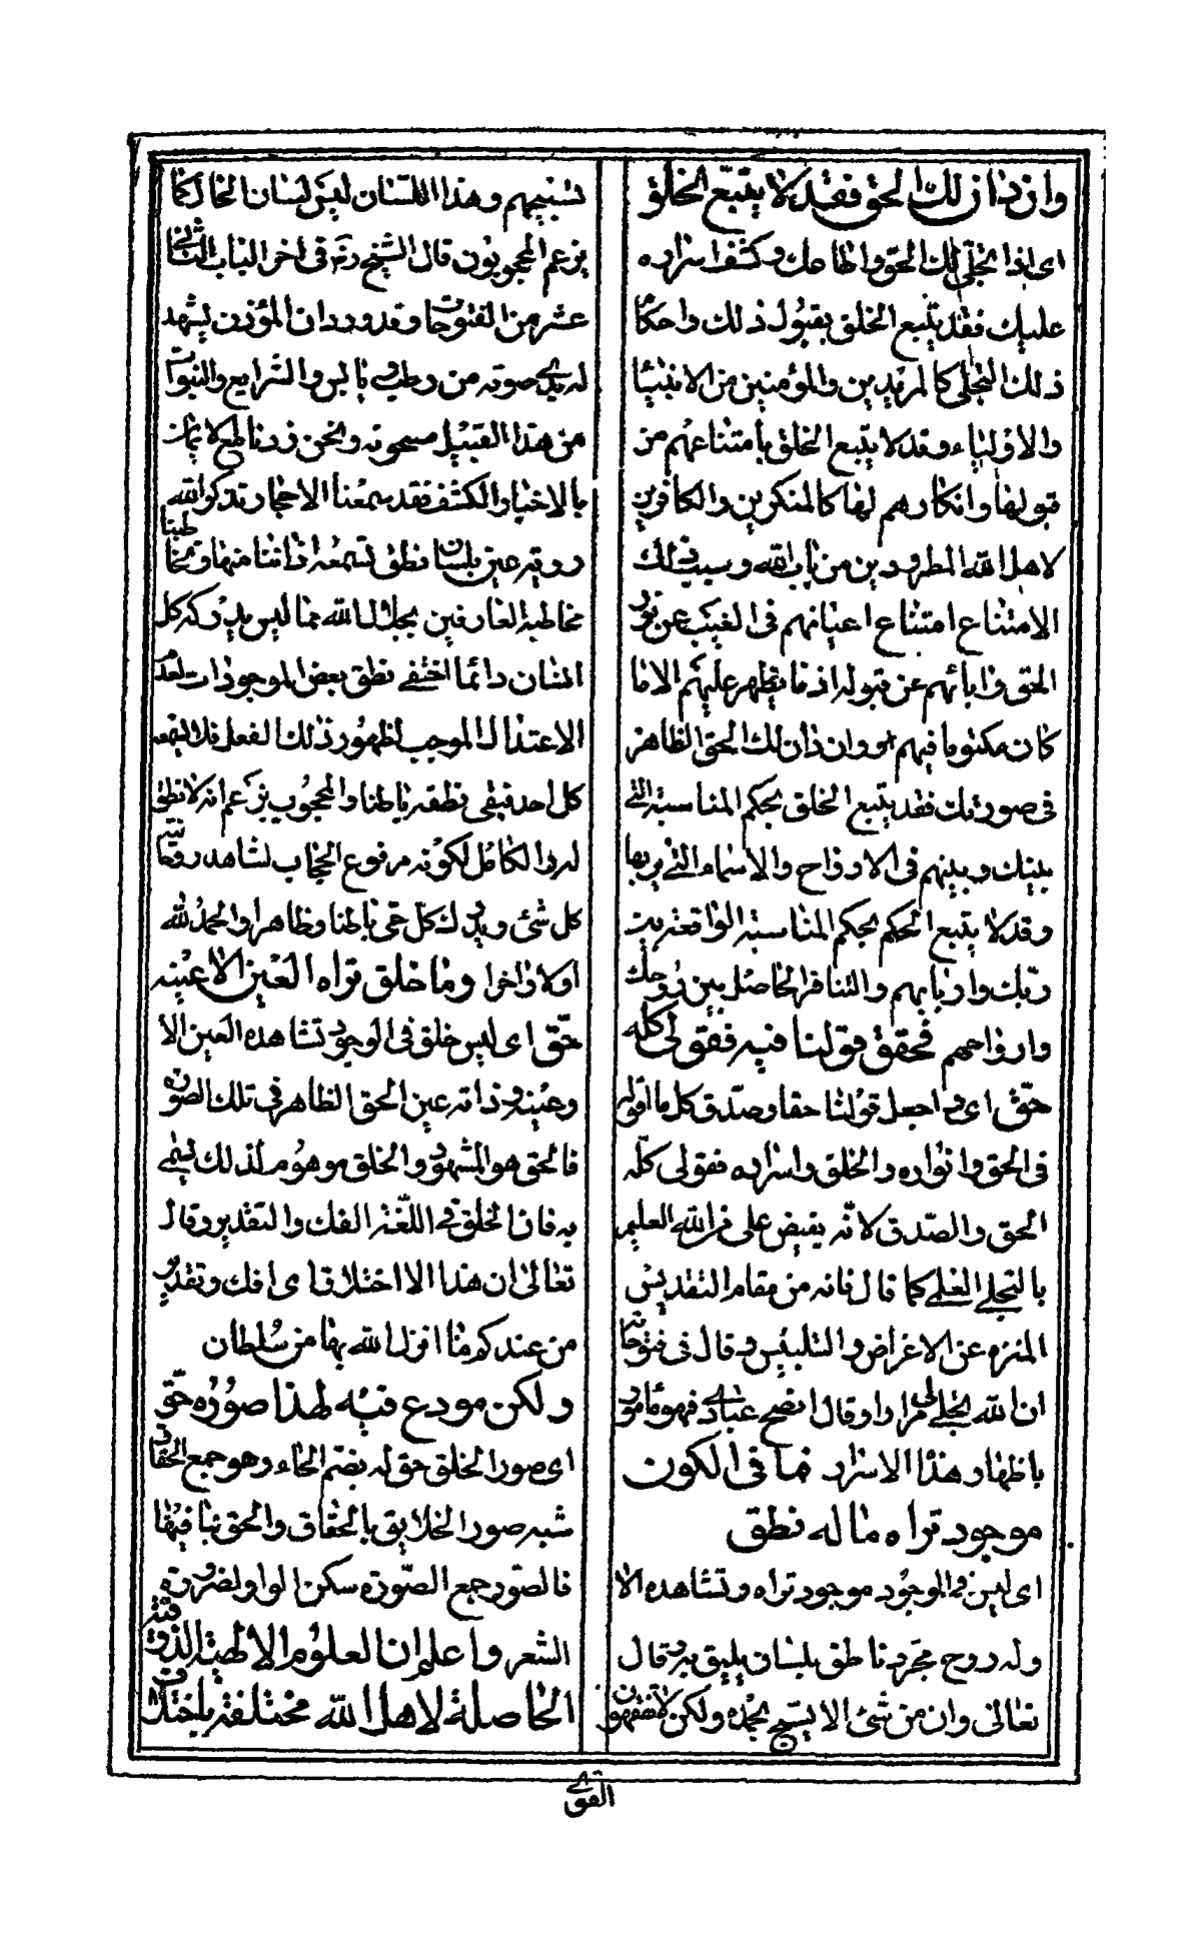 وان دان لك الحق فقد لا يتبع الخلق
اى اذا تجلى لك الحق واطاعك وكشف اسراره
عليك فقد يتبع الخلق بقبول ذلك واحكام
ذلك التجلى كالمريدين والمؤمنين من الانبيا
والاولياء وقد لا يتبع الخلق بامتناعهم من
قبولها وانكارهم لها كالمنكرين والكافرين
لاهل الله المطرودين من باب الله وسبب ذلك
الامتناع امتناع اعيانهم فى الغيب عن نور
الحق وابائهم عن قبوله اذ ما يظهر عليهم الا ما
كان مكتوما فيهم او وان دان لك الحق الظاهر
فى صورتك فقد يتبع الخلق بحكم المناسبة التى
بينك وبينهم فى الارواح والاسماء التى يربها
وقد لا يتبع الحكم بحكم المناسبة الواقعة بين
ربك واربابهم والتنافر الحاصل بين روحك
وارواحهم فحقق قولنا فيه فقولى كله
حق اى اجعل قولنا حقا وصدق كل ما اقوله
فى الحق وانواره والخلق واسراره فقولى كله
الحق والصدق لانه يفيض على من الله العليم
بالتجلى العلمى كما قال فانه من مقام التقديس
المنزه عن الاغراض والتلبيس وقال فى فتوحاته
ان الله تجلى لى مرارا وقال انصح عبادى فهو مامور
باظهار هذا الاسرار فما فى الكون
موجود تراه ما له نطق
اى ليس فى الوجود موجود تراه وتشاهده الا
وله روح مجرد ناطق بلسان يليق به قال
تعالى وان من شئ الا يسبح بحمده ولكن لا تفقهون
تسبيحهم وهذا اللسان ليس لسان الحال كما
يزعم المحجوبون قال الشيخ رضى فى اخر الباب الثانى
عشر من الفتوحات وقد ورد ان المؤذن يشهد
له مدى صوته من رطب ويابس والشرايع والنبوات
من هذا القبيل مسحونه ونحن زدنا مع الايمان
بالاخبار الكشف فقد سمعنا الاحجار تذكر الله
رؤية عين بلسان نطق تسمعه اذاننا منها وتخاطبنا
مخاطبة العارفين بجلال الله مما ليس يدركه كل
انسان دائما اختفى نطق بعض الموجودات لعدم
الاعتدال الموجب لظهور ذلك الفعل فلا يفقهه
كل احد فبقى نطقه باطنا والمحجوب يزعم انه لا نطق
له والكامل لكونه مرفوع الحجاب لشاهد روحانية
كل شئ ويدرك كل حى باطنا وظاهرا والحمد لله
اولا واخرا وما خلق تراه العين الا عينه
حق اى ليس خلق فى الوجود تشاهده العين الا
وعينه وذاته عين الحق الظاهر فى تلك الصورة
فالحق هو المشهود والخلق موهوم لذلك يسمى
به فان الخلق فى اللغة الافك والتقدير وقال
تعالى ان هذا الا اختلاق اى افك وتقدير
من عندكم ما انزل الله بها من سلطان
ولكن مودع فيه لهذا صوره حق
اى صور الخلق حق له بضم الحاء وهو جمع الحقاق
شبه صور الخلايق بالحقاق والحق بما فيها
فالصور جمع الصورة سكن الواو لضرورة
الشعر واعلم ان العلوم الالهية الذوقية
الحاصلة لاهل الله مختلفة باختلاف
القوى